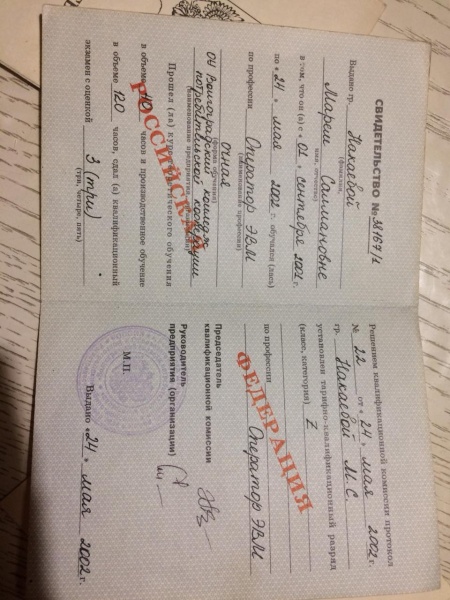 СВИДЕТЕЛЬСТВО № 38167/1
Выдано гр. Накаевой
(фамилия,
Марем Саламановне
имя, отчество)
в том, что он (а) с « 01 » сентября 2001 г.
по « 24 » мая 2002 г. обучался (лась)
по профессии Оператор ЭВМ
(наименование профессии)
очная
(форма обучения)
ОУ Волгоградский колледж
потребительской кооперации
(наименование предприятия
Прошел (ла) курс теоретического обучения
в объеме часов и производственное обучение
в объеме 120 часов, сдал (а) квалификационный
экзамен с оценкой 3 (три)
(три, четыре, пять)
РОССИЙСКАЯ
Решением квалификационной комиссии протокол
№ 22 от « 24 » мая 2002 г.
гр. Накаевой М.С.
установлен тарифно-квалификационный разряд
(класс, категория) 2
по профессии Оператор ЭВМ
ФЕДЕРАЦИЯ
Председатель
квалификационной комиссии
Руководитель
предприятия (организации)
М.П.
Выдано « 24 » мая 2002 г.